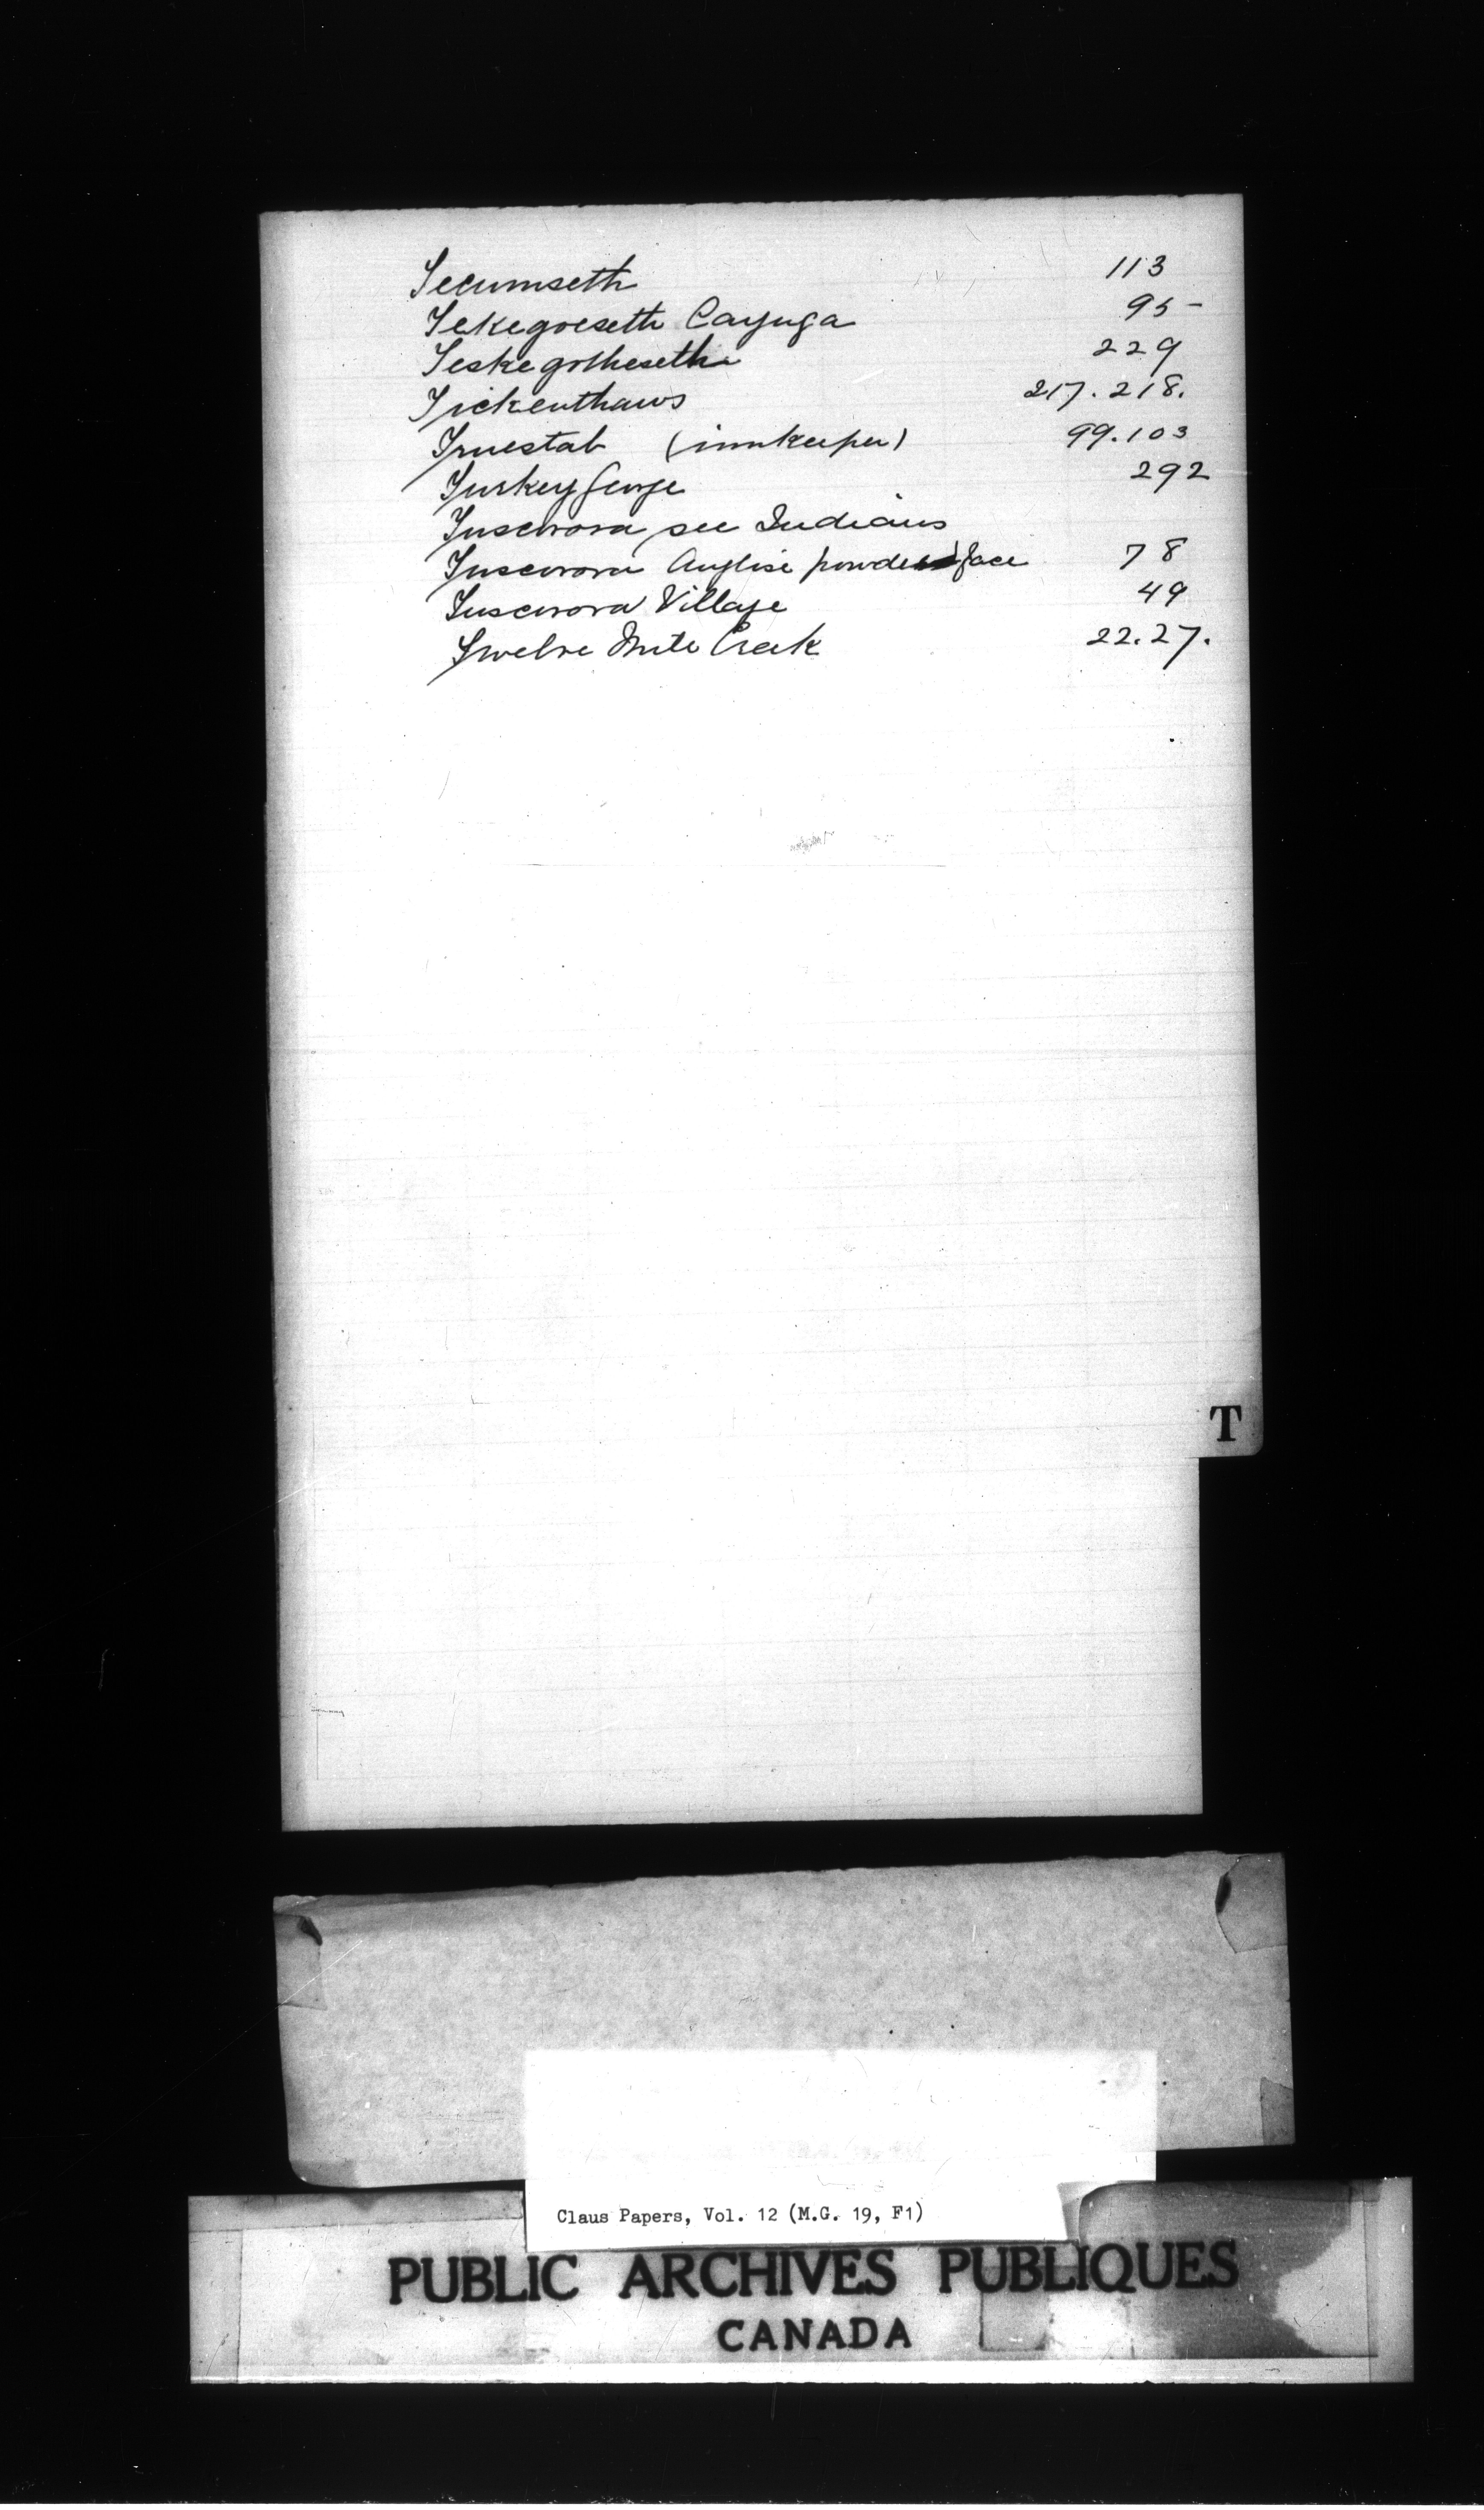 Tecumseth 113
Tekegoeseth Cayuga 95
Teskegotheseth 229
Tickenthaws 217. 218.
Truestab (innkeeper) 99. 103
Turkey George 292
Tuscorora see Indians
Tuscorora Anglise powder face 78
Tuscorora Village 49
Twelve Mile Creek 22. 27.
T
Claus Papers, Vol. 12 (M.G. 19, F1)
PUBLIC ARCHIVES PUBLIQUES
CANADA